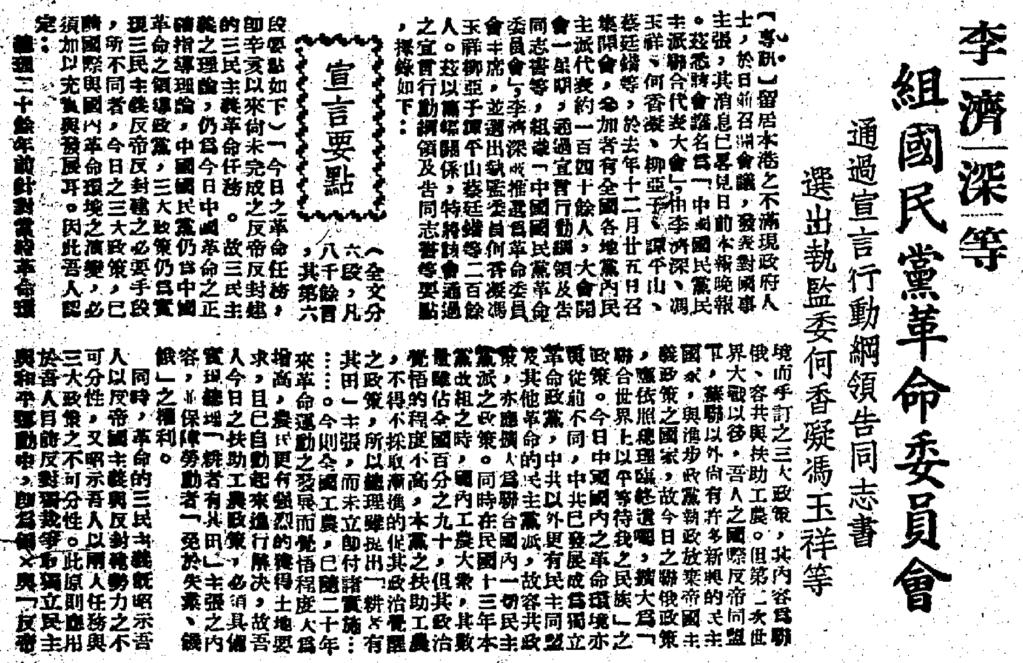 李濟深等
組國民黨革命委員會
通過宣言行動綱領告同志書
選出執監委何香凝馮玉祥等
【專訊】留居本港之不滿現政府人
士，於日前召開會議，發表對國事
主張，其消息已畧見日前本報晚報
。茲悉該會議名爲「中國國民黨民
主派聯合代表大會」，由李濟深、馮
玉祥、何香凝、柳亞子、譚平山、
蔡廷鍇等，於去年十二月廿五日召
集開會，參加者有全國各地黨內民
主派代表約一百四十餘人，大會開
會一星期，通過宣言行動綱領及告
同志書等，組織「中國國民黨革命
委員會」，李濟深被推選爲革命委員
會主席，並選出執監委員何香凝馮
玉祥柳亞子譚平山蔡廷鍇等二百餘
人。茲以黨關係，特將該會通過
之宣言行動綱領及告同志書等要點
，擇錄如下：
宣言要點
（全文分
六段，凡
八千餘言
，其第六
段要點如下）「今日之革命任務，
卽辛亥以來尚未完成之反帝反封建
的三民主義革命任務。故三民主
義之理論，仍爲今日中國革命之正
確指導理論，中國國民黨仍爲中國
革命之領導政黨，三大政策仍爲實
現三民主義反帝反封建之必要手段
，所不同者，今日之三大政策，已
隨國際與國內革命環境之演變，必
須加以充實與發展耳。因此吾人認
定：
總理二十餘年前針對當時革命環
境而手訂之三大政策，其內容爲聯
俄、容共與扶助工農。但第二次世
界大戰以後，吾人之國際反帝同盟
，蘇聯以外尚有許多新興的民主
國家，與進步政黨執政放棄帝國主
義政策之國家，故今日之聯俄政策
，應依照總理臨終遺囑，擴大爲「
聯合世界上以平等待我之民族」之
政策。今日中國國內之革命環境亦
與從前不同，中共已發展成爲獨立
革命政黨，中共以外更有民主同盟
及其他革命的民主黨派，故容共政
策，亦應擴大爲聯合國內一切民主
黨派之政策。同時在民國十三年本
黨改組之時，國內工農大衆，其數
量雖佔全國百分之九十，但其政治
覺悟的程度不高，本黨之扶助工農
，不得不採取漸進的促其政治覺醒
之政策，所以總理雖提出「耕者有
其田」主張，而未立卽付諸實施…
……。今則全國工農，已隨二十年
來革命運動之發展而覺悟程度大爲
增高，農民更有强烈的獲得土地要
求，且已自動起來進行解決，故吾
人今日之扶助工農政策，必須具備
實現總理「耕者有其田」主張之內
容，並保障勞動者「免於失業、饑
餓」之權利。
同時，革命的三民主義旣昭示吾
人以反帝國主義與反封建勢力之不
可分性，又昭示吾人以兩人任務與
三大政策之不可分性。此原則應用
於吾人目前反對獨裁爭取獨立民主
與和平運動中，卽爲與「反帝